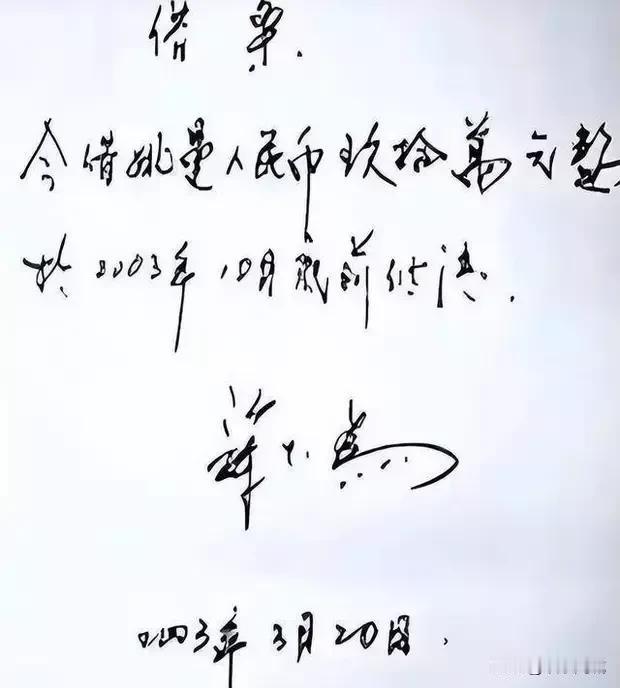 借
今借姚人民币玖拾萬元整
於2003年10月底前付清.
2003年3月20日.